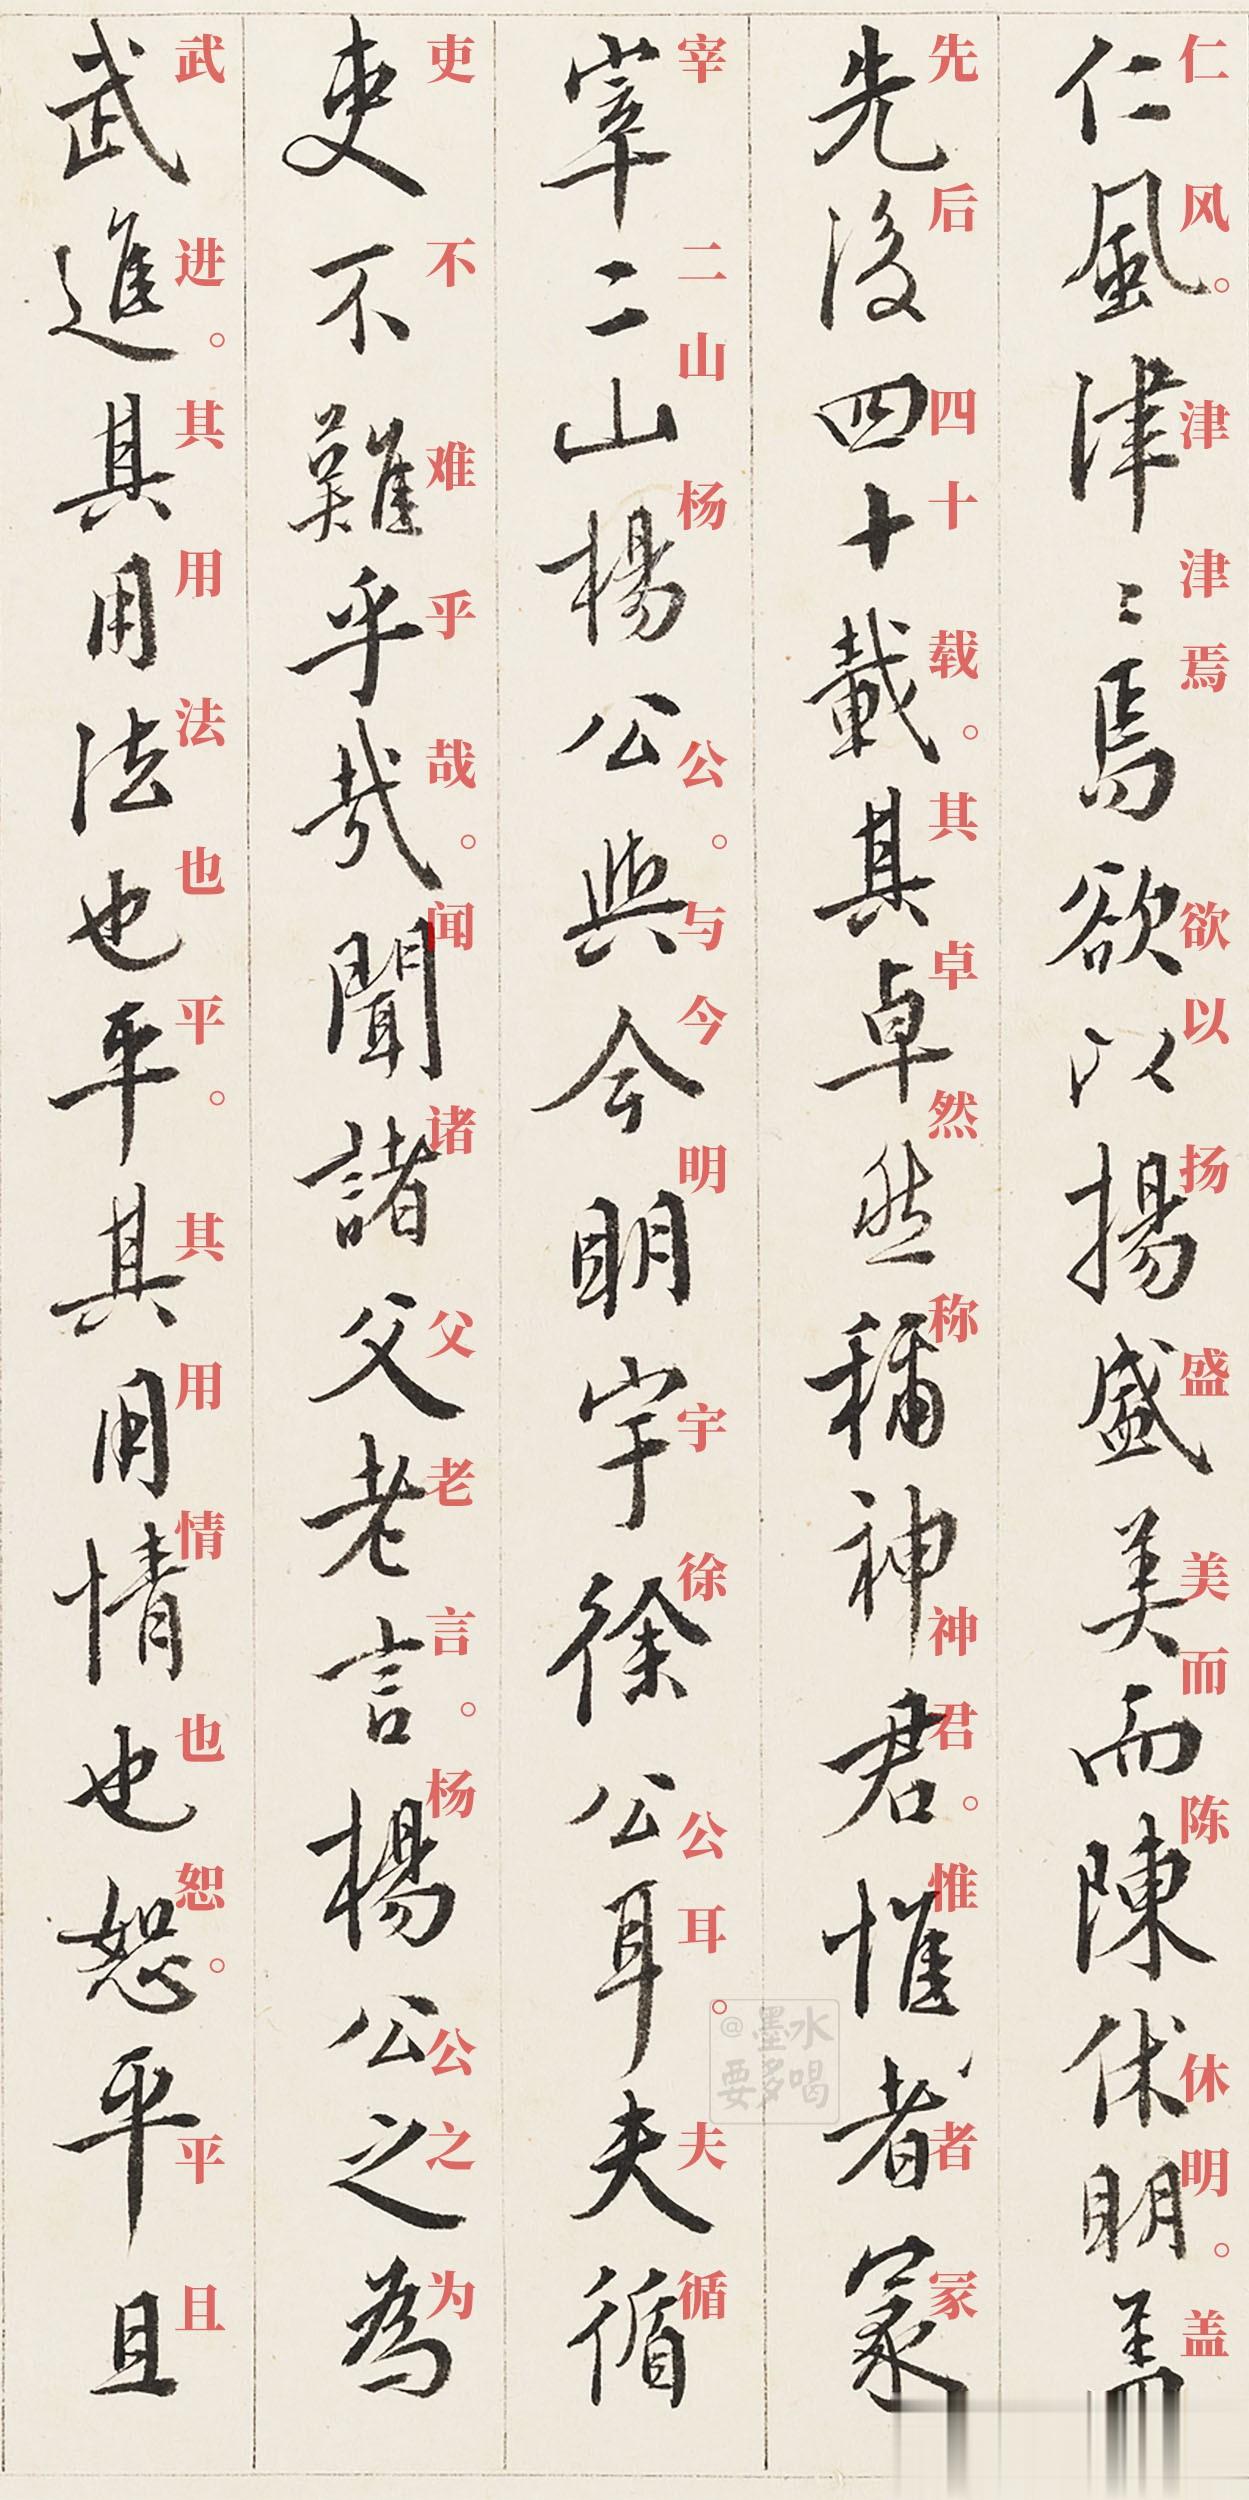 仁风。津津焉欲以扬盛美而陈休明。盖
仁風津〻焉欲以揚盛美而陳休明盖
先后四十载。其卓然称神君。惟者冢
先後四十載其卓然稱神君惟者冢
宰二山杨公。与今明宇徐公耳。夫循
宰二山楊公與今明宇徐公耳夫循
吏不难乎哉。闻诸父老言。杨公之为
吏不難乎哉聞諸父老言楊公之為
武进。其用法也平。其用情也恕。平且
武進其用法也平其用情也恕平且
@墨水
要多喝